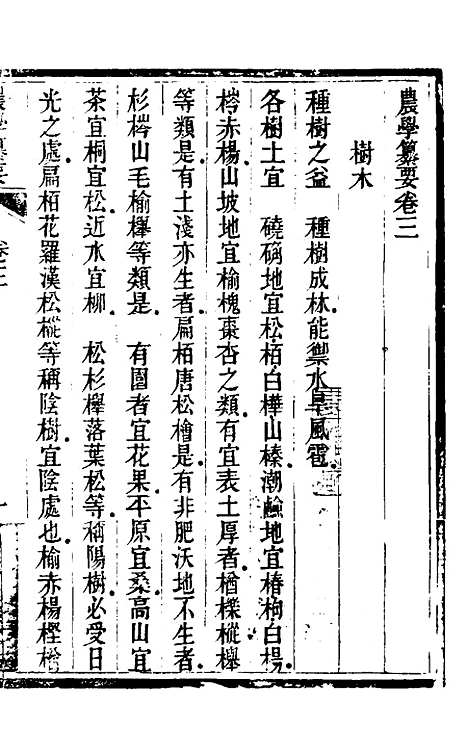 農學纂要卷三
樹木
種樹之益　種樹成林能禦水旱風雹
各樹土宜　磽确地宜松栢白樺山榛潮鹼地宜椿枸白楊
樗赤楊山坡地宜榆槐棗杏之類有宜表土厚者楢櫟樅櫸
等類是有土淺亦生者扁栢唐松檜是有非肥沃地不生者
杉樗山毛榆櫸等類是　有園者宜花果平原宜桑高山宜
茶宜桐宜松近水宜柳　松杉櫸落葉松等稱陽樹必受日
光之處扁栢花羅漢松樅等稱陰樹宜陰處也榆赤楊樫檜